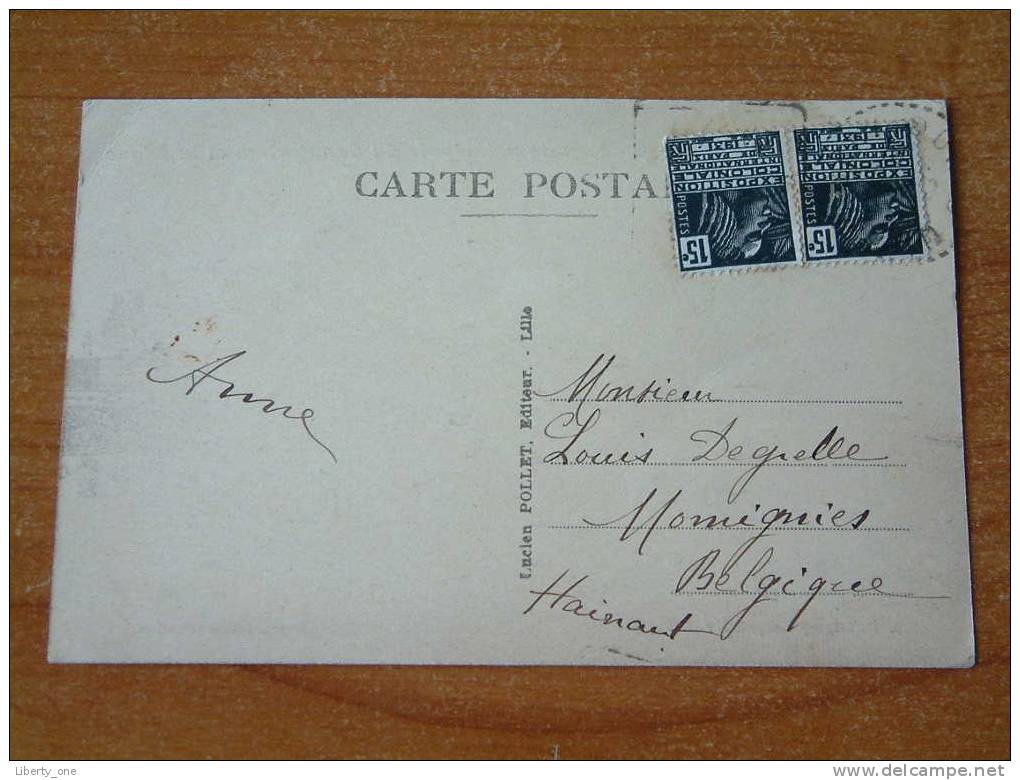 CARTE POSTA
EXPOSITION
COLONIALE
INTERNATIONALE
PARIS
1931
POSTES
15c
EXPOSITION
COLONIALE
INTERNATIONALE
PARIS
1931
POSTES
15c
Anne
Lucien POLLET, Editeur. - Lille
Monsieur
Louis Degrelle
Momignies
Belgique
Hainaut
Liberty_one
www.delcampe.net